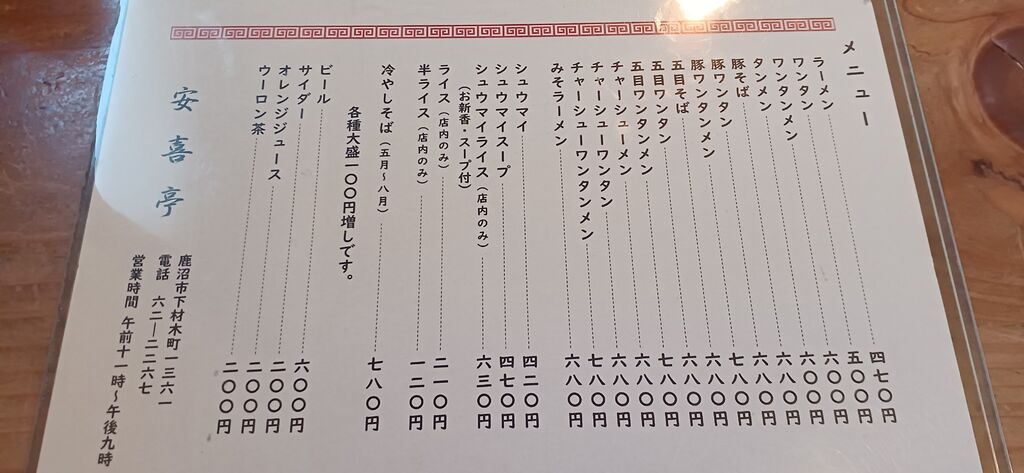 メニュー
ラーメン 四七〇円
ワンタン 五〇〇円
ワンタンメン 六〇〇円
タンメン 六〇〇円
豚そば 六八〇円
豚ワンタン 六八〇円
豚ワンタンメン 七八〇円
五目そば 六八〇円
五目ワンタン 六八〇円
五目ワンタンメン 七八〇円
チャーシューメン 六八〇円
チャーシューワンタン 六八〇円
チャーシューワンタンメン 七八〇円
みそラーメン 六八〇円
シュウマイ 四二〇円
シュウマイスープ 四七〇円
シュウマイライス(店内のみ) 六三〇円
(お新香・スープ付)
ライス(店内のみ) 二一〇円
半ライス(店内のみ) 一二〇円
冷やしそば(五月〜八月) 七八〇円
各種大盛一〇〇円増しです。
ビール 六〇〇円
サイダー 二〇〇円
オレンジジュース 二〇〇円
ウーロン茶 二〇〇円
安喜亭
鹿沼市下材木町一三六一
電話 六二―二二六七
営業時間 午前十一時〜午後九時